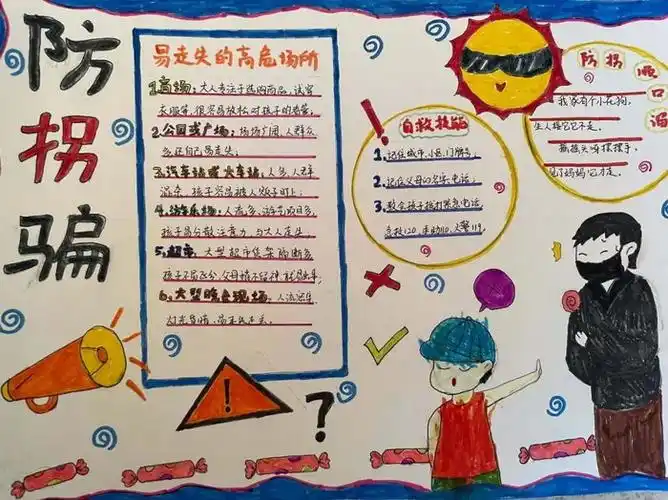 防拐骗
易走失的高危场所
1.商场：大人专注于选购商品，试穿
衣服等，很容易放松对孩子的看管。
2.公园或广场：场地广阔，人群众
多还自己易走失。
3.汽车站或火车站：人多，人群
混杂，孩子容易被人贩子盯上。
4.游乐场：人流多，游乐项目多，
孩子易分散注意力，与大人走失
5.超市：大型超市货架隔断多
孩子不易
6.大型晚会现场：人流密集
灯光昏暗，易走失
自救技能
1.记住城市、小区、门牌号。
2.记住父母的名字、电话。
3.教会孩子拨打紧急电话
急救120、 110、火警119
防拐顺口溜
我家有个小花狗，
生人接它它不走。
摇摇头呀摆摆手，
见了妈妈它才走。
!
!
?